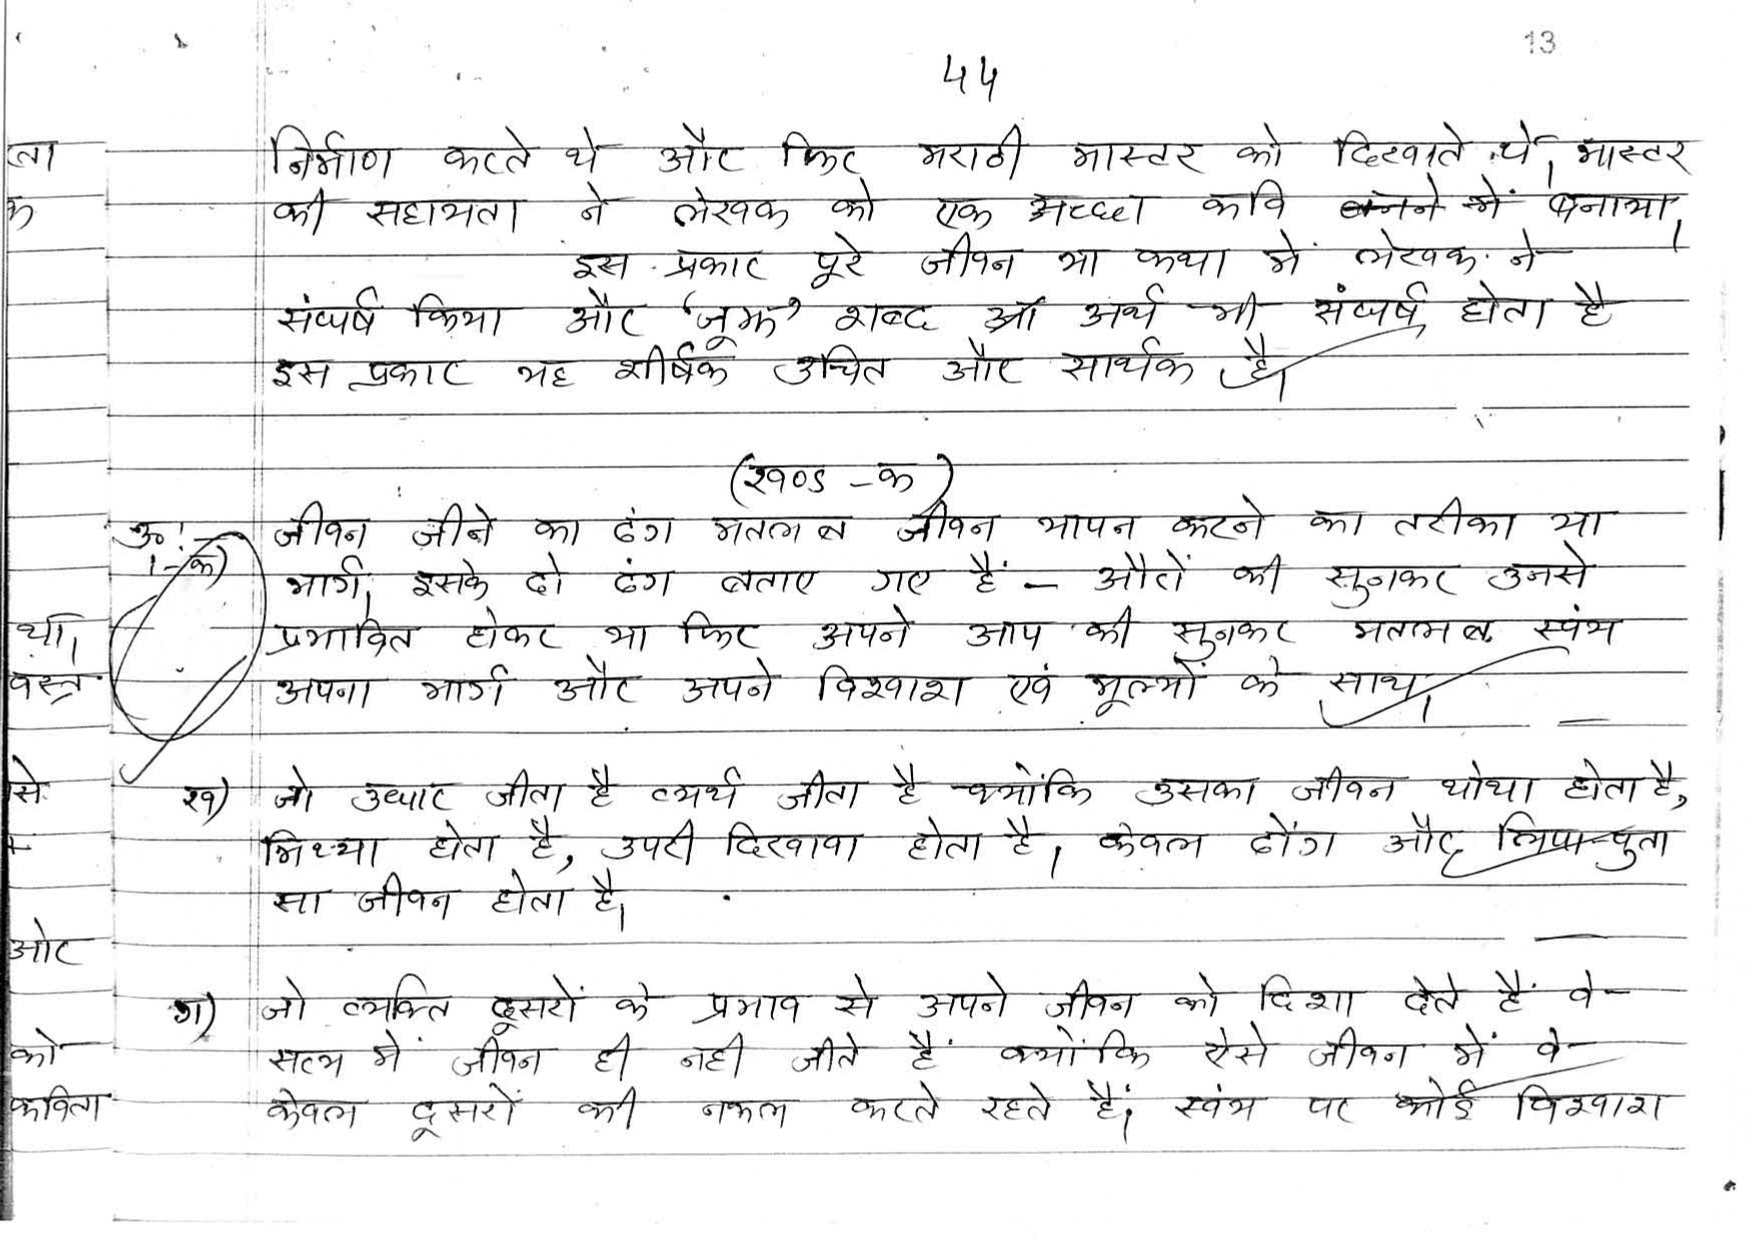 13
44
निर्माण करते थे और फिर मराठी मास्टर को दिखाते थे। मास्टर
की सहायता ने लेखक को एक अच्छा कवि बनने में बनाया।
इस प्रकार पूरे जीवन या कथा में लेखक ने
संघर्ष किया और 'जूझ' शब्द का अर्थ भी संघर्ष होता है
इस प्रकार यह शीर्षक उचित और सार्थक है।
(खण्ड - क)
उ०:- जीवन जीने का ढंग मतलब जीवन यापन करने का तरीका या
1-क) मार्ग। इसके दो ढंग बताए गए हैं - औरों की सुनकर उनसे
प्रभावित होकर या फिर अपने आप की सुनकर मतलब स्वंय
अपना मार्ग और अपने विश्वाश एवं मूल्यों के साथ।
ख) जो उधार जीता है व्यर्थ जीता है क्योंकि उसका जीवन थोथा होता है,
मिथ्या होता है, उपरी दिखावा होता है। केवल ढोंग और लिपा-पुता
सा जीवन होता है।
ग) जो व्यक्ति दूसरों के प्रभाव से अपने जीवन को दिशा देते हैं वे
सत्य में जीवन ही नही जीते हैं क्योंकि ऐसे जीवन में वे
केवल दूसरों की नकल करते रहते हैं। स्वंय पर कोई विश्वाश
ता
क
थी।
वस्त्र
से
ओर
को
कविता